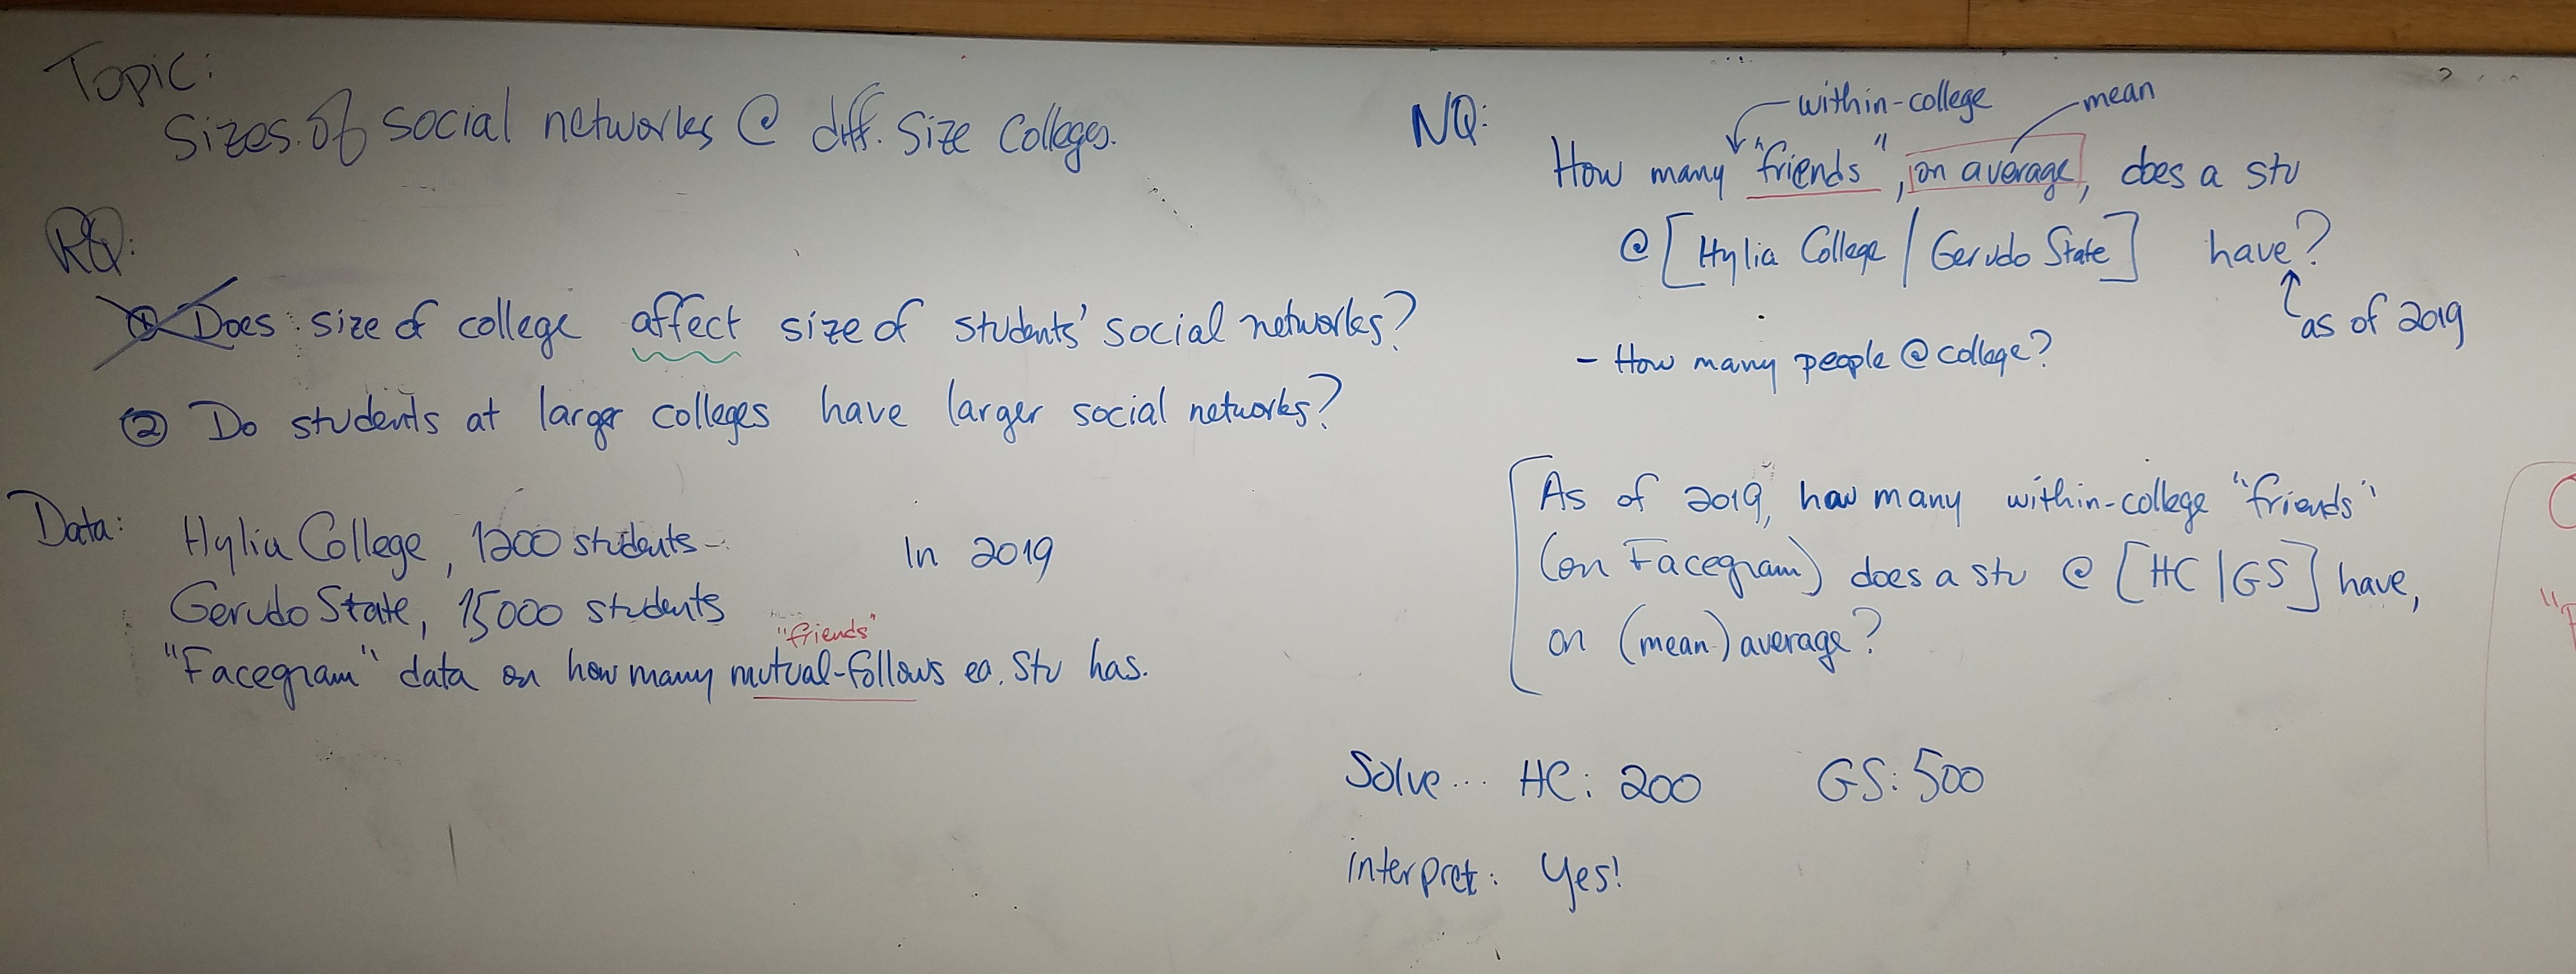 Topic:
Sizes of social networks @ diff. Size Colleges.
RQ:
① Does size of college affect size of students' social networks?
② Do students at larger colleges have larger social networks?
Data: Hylia College, 1200 students
In 2019
Gerudo State, 15000 students
"friends"
"Facegram" data on how many mutual-follows ea. Stu has.
NQ:
within-college
mean
How many "friends", on average, does a stu
@ [Hylia College | Gerudo State] have?
as of 2019
- How many people @ college?
As of 2019, how many within-college "friends"
(on Facegram) does a stu @ [HC | GS] have,
on (mean) average?
Solve... HC: 200 GS: 500
interpret: Yes!